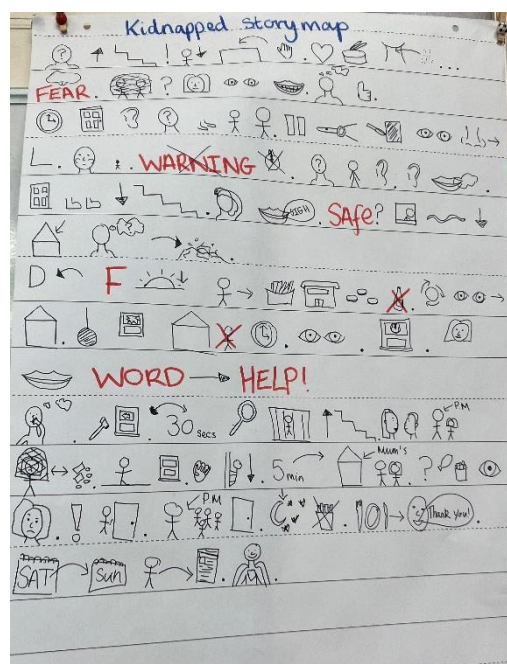 Kidnapped Storymap
? ! ...
FEAR. ? .
? .
L. ? . WARNING . ? . ? ? .
. SIGH . SAFE? 
?
D F
. . .
WORD HELP!
. . 30 secs . PM
. . . 5 min Mum's . ?
! . . PM . . Thank you! .
SAT Sun . .